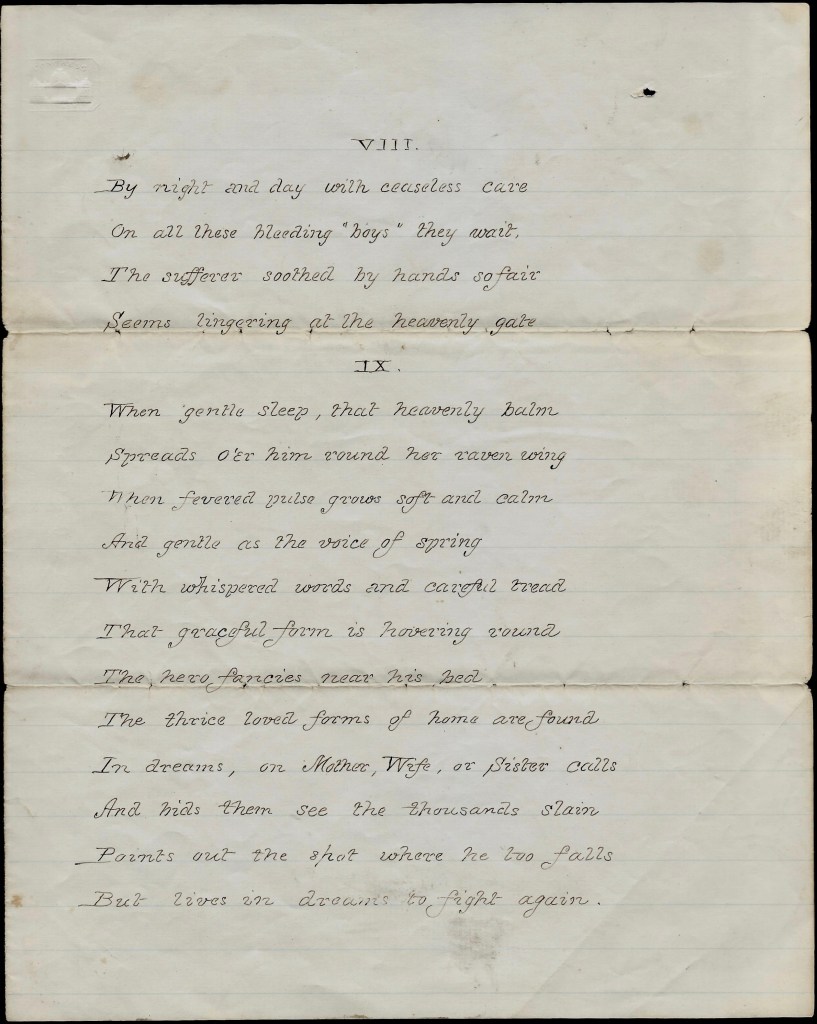 VIII.
By night and day with ceaseless care
On all these bleeding "boys" they wait,
The sufferer soothed by hands so fair
Seems lingering at the heavenly gate
IX.
When gentle sleep, that heavenly balm
Spreads o'er him round her raven wing
When fevered pulse grows soft and calm
And gentle as the voice of spring
With whispered words and careful tread
That graceful form is hovering round
The hero fancies near his bed
The thrice loved forms of home are found
In dreams, on Mother, Wife, or Sister calls
And bids them see the thousands slain
Points out the spot where he too falls
But lives in dreams to fight again.